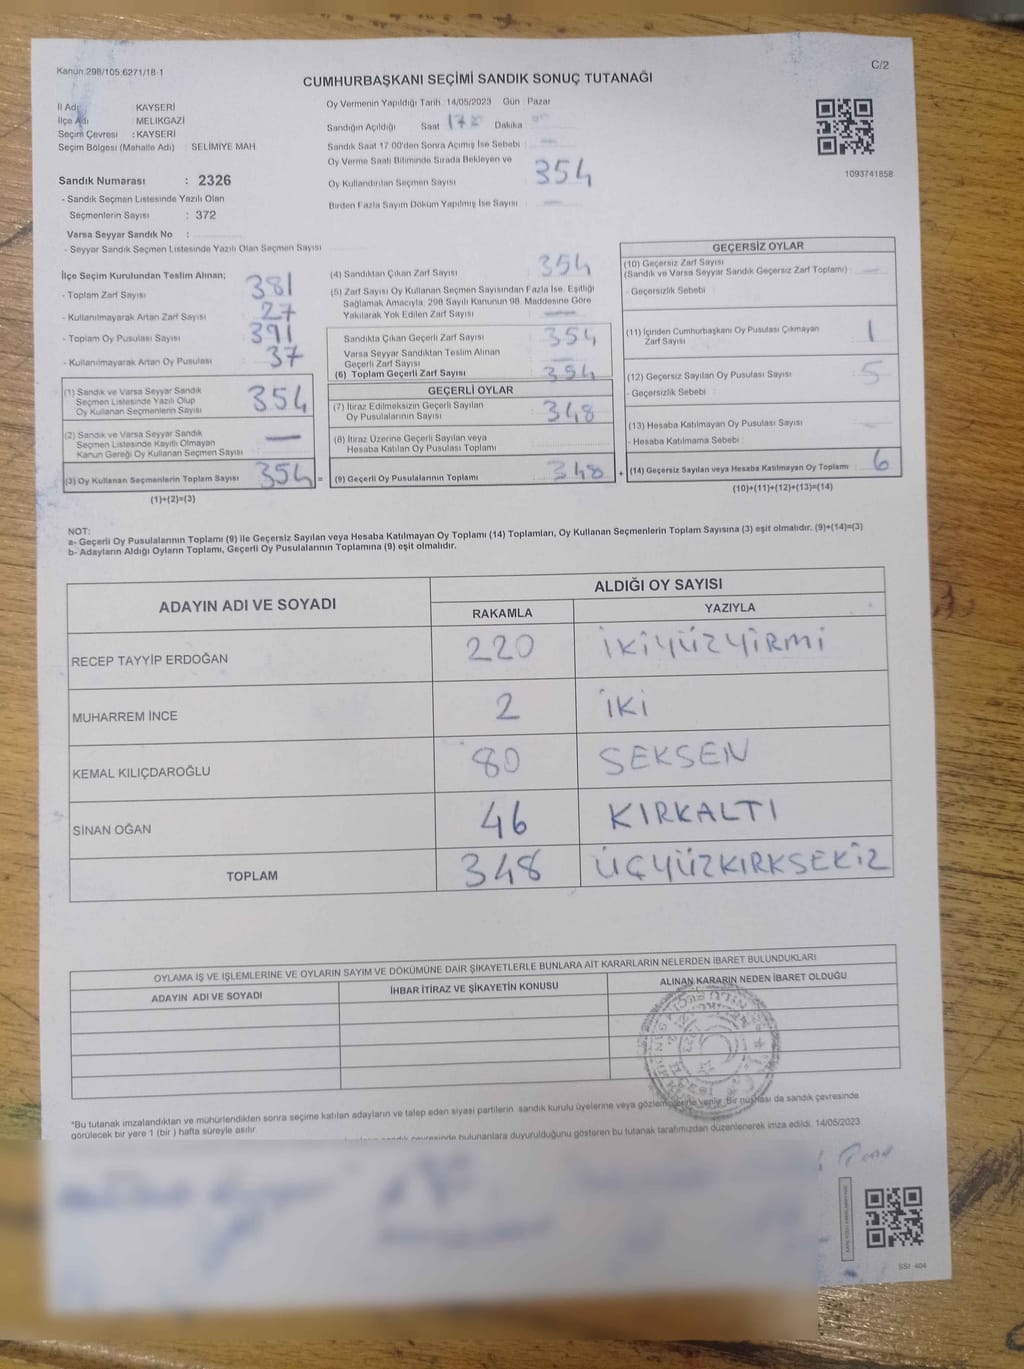 Kanun:298/105:6271/18-1
C/2
CUMHURBAŞKANI SEÇİMİ SANDIK SONUÇ TUTANAĞI
İl Adı : KAYSERİ
İlçe Adı : MELİKGAZİ
Seçim Çevresi : KAYSERİ
Seçim Bölgesi (Mahalle Adı) : SELİMİYE MAH
Sandık Numarası : 2326
- Sandık Seçmen Listesinde Yazılı Olan
Seçmenlerin Sayısı : 372
Varsa Seyyar Sandık No :
- Seyyar Sandık Seçmen Listesinde Yazılı Olan Seçmen Sayısı
Oy Vermenin Yapıldığı Tarih :14/05/2023 Gün : Pazar
Sandığın Açıldığı Saat Dakika
Sandık Saat 17:00'den Sonra Açımış İse Sebebi :
Oy Verme Saati Bitiminde Sırada Bekleyen ve
Oy Kullandırılan Seçmen Sayısı 354
Birden Fazla Sayım Döküm Yapılmış İse Sayısı
1093741858
İlçe Seçim Kurulundan Teslim Alınan;
- Toplam Zarf Sayısı 381
- Kullanılmayarak Artan Zarf Sayısı 27
- Toplam Oy Pusulası Sayısı 391
- Kullanılmayarak Artan Oy Pusulası 37
(1) Sandık ve Varsa Seyyar Sandık
Seçmen Listesinde Yazılı Olup
Oy Kullanan Seçmenlerin Sayısı 354
(2) Sandık ve Varsa Seyyar Sandık
Seçmen Listesinde Kayıtlı Olmayan
Kanun Gereği Oy Kullanan Seçmen Sayısı —
(3) Oy Kullanan Seçmenlerin Toplam Sayısı 354 =
(1)+(2)=(3)
(4) Sandıktan Çıkan Zarf Sayısı 354
(5) Zarf Sayısı Oy Kullanan Seçmen Sayısından Fazla İse, Eşitliği
Sağlamak Amacıyla, 298 Sayılı Kanunun 98. Maddesine Göre
Yakılarak Yok Edilen Zarf Sayısı —
Sandıkta Çıkan Geçerli Zarf Sayısı 354
Varsa Seyyar Sandıktan Teslim Alınan
Geçerli Zarf Sayısı —
(6) Toplam Geçerli Zarf Sayısı 354
GEÇERLİ OYLAR
(7) İtiraz Edilmeksizin Geçerli Sayılan
Oy Pusulalarının Sayısı 348
(8) İtiraz Üzerine Geçerli Sayılan veya
Hesaba Katılan Oy Pusulası Toplamı
(9) Geçerli Oy Pusulalarının Toplamı 348 +
GEÇERSİZ OYLAR
(10) Geçersiz Zarf Sayısı
(Sandık ve Varsa Seyyar Sandık Geçersiz Zarf Toplamı) —
- Geçersizlik Sebebi :
(11) İçinden Cumhurbaşkanı Oy Pusulası Çıkmayan
Zarf Sayısı 1
(12) Geçersiz Sayılan Oy Pusulası Sayısı 5
- Geçersizlik Sebebi :
(13) Hesaba Katılmayan Oy Pusulası Sayısı —
- Hesaba Katılmama Sebebi :
(14) Geçersiz Sayılan veya Hesaba Katılmayan Oy Toplamı 6
(10)+(11)+(12)+(13)=(14)
NOT:
a- Geçerli Oy Pusulalarının Toplamı (9) ile Geçersiz Sayılan veya Hesaba Katılmayan Oy Toplamı (14) Toplamları, Oy Kullanan Seçmenlerin Toplam Sayısına (3) eşit olmalıdır. (9)+(14)=(3)
b- Adayların Aldığı Oyların Toplamı, Geçerli Oy Pusulalarının Toplamına (9) eşit olmalıdır.
ADAYIN ADI VE SOYADI ALDIĞI OY SAYISI
RAKAMLA YAZIYLA
RECEP TAYYİP ERDOĞAN 220 İKİYÜZYİRMİ
MUHARREM İNCE 2 İKİ
KEMAL KILIÇDAROĞLU 80 SEKSEN
SİNAN OĞAN 46 KIRKALTI
TOPLAM 348 ÜÇYÜZKIRKSEKİZ
OYLAMA İŞ VE İŞLEMLERİNE VE OYLARIN SAYIM VE DÖKÜMÜNE DAİR ŞİKAYETLERLE BUNLARA AİT KARARLARIN NELERDEN İBARET BULUNDUKLARI
ADAYIN ADI VE SOYADI İHBAR İTİRAZ VE ŞİKAYETİN KONUSU ALINAN KARARIN NEDEN İBARET OLDUĞU
*Bu tutanak imzalandıktan ve mühürlendikten sonra seçime katılan adayların ve talep eden siyasi partilerin sandık kurulu üyelerine veya gözlemcilerine verilir. Bir nüshası da sandık çevresinde
görülecek bir yere 1 (bir ) hafta süreyle asılır.
bulunanlara duyurulduğunu gösteren bu tutanak tarafımızdan düzenlenerek imza edildi. 14/05/2023
SSI: 404